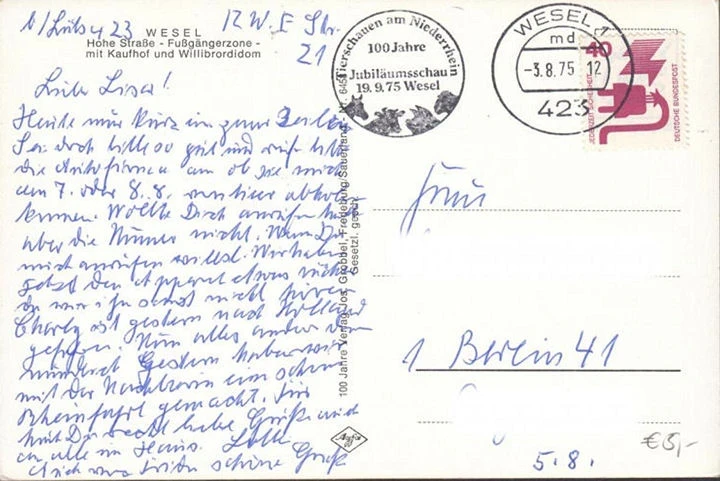 b/Lutsey 23
R W E Str.
21
WESEL
Hohe Straße - Fußgängerzone -
mit Kaufhof und Willibrordidom
Heute nur kurz ein paar Zeilen
Sei doch bitte so gut und rufe bitte
die an ob sie mich
am 7. oder 8.8. von hier abholen
können. Wollte Dich anrufen habe
aber die Nummer nicht. Wenn Du
mich anrufen willst. Wir haben
jetzt den Apparat etwas
da wir ihn sonst nicht hören
Charly ist gestern nach Holland
gefahren. Nun alles andere dann
mündlich Gestern haben wir
mit der Nachbarin eine schöne
Rheinfahrt gemacht. Für
heut Dir recht liebe Grüße auch
an alle im Haus.
Auch von schöne Grüße
100 Jahre Verlag Jos. Grobbel, Fredeburg/Sauerland -
Gesetzl. gesch.
Agfa
Tierschauen am Niederrhein
100 Jahre
Jubiläumsschau
19.9.75 Wesel
WESEL 1
md
-3.8.75 12
423
40
JEDERZEIT SICHERHEIT
DEUTSCHE BUNDESPOST
Frau
1 Berlin 41
€ 3,-
5.8.